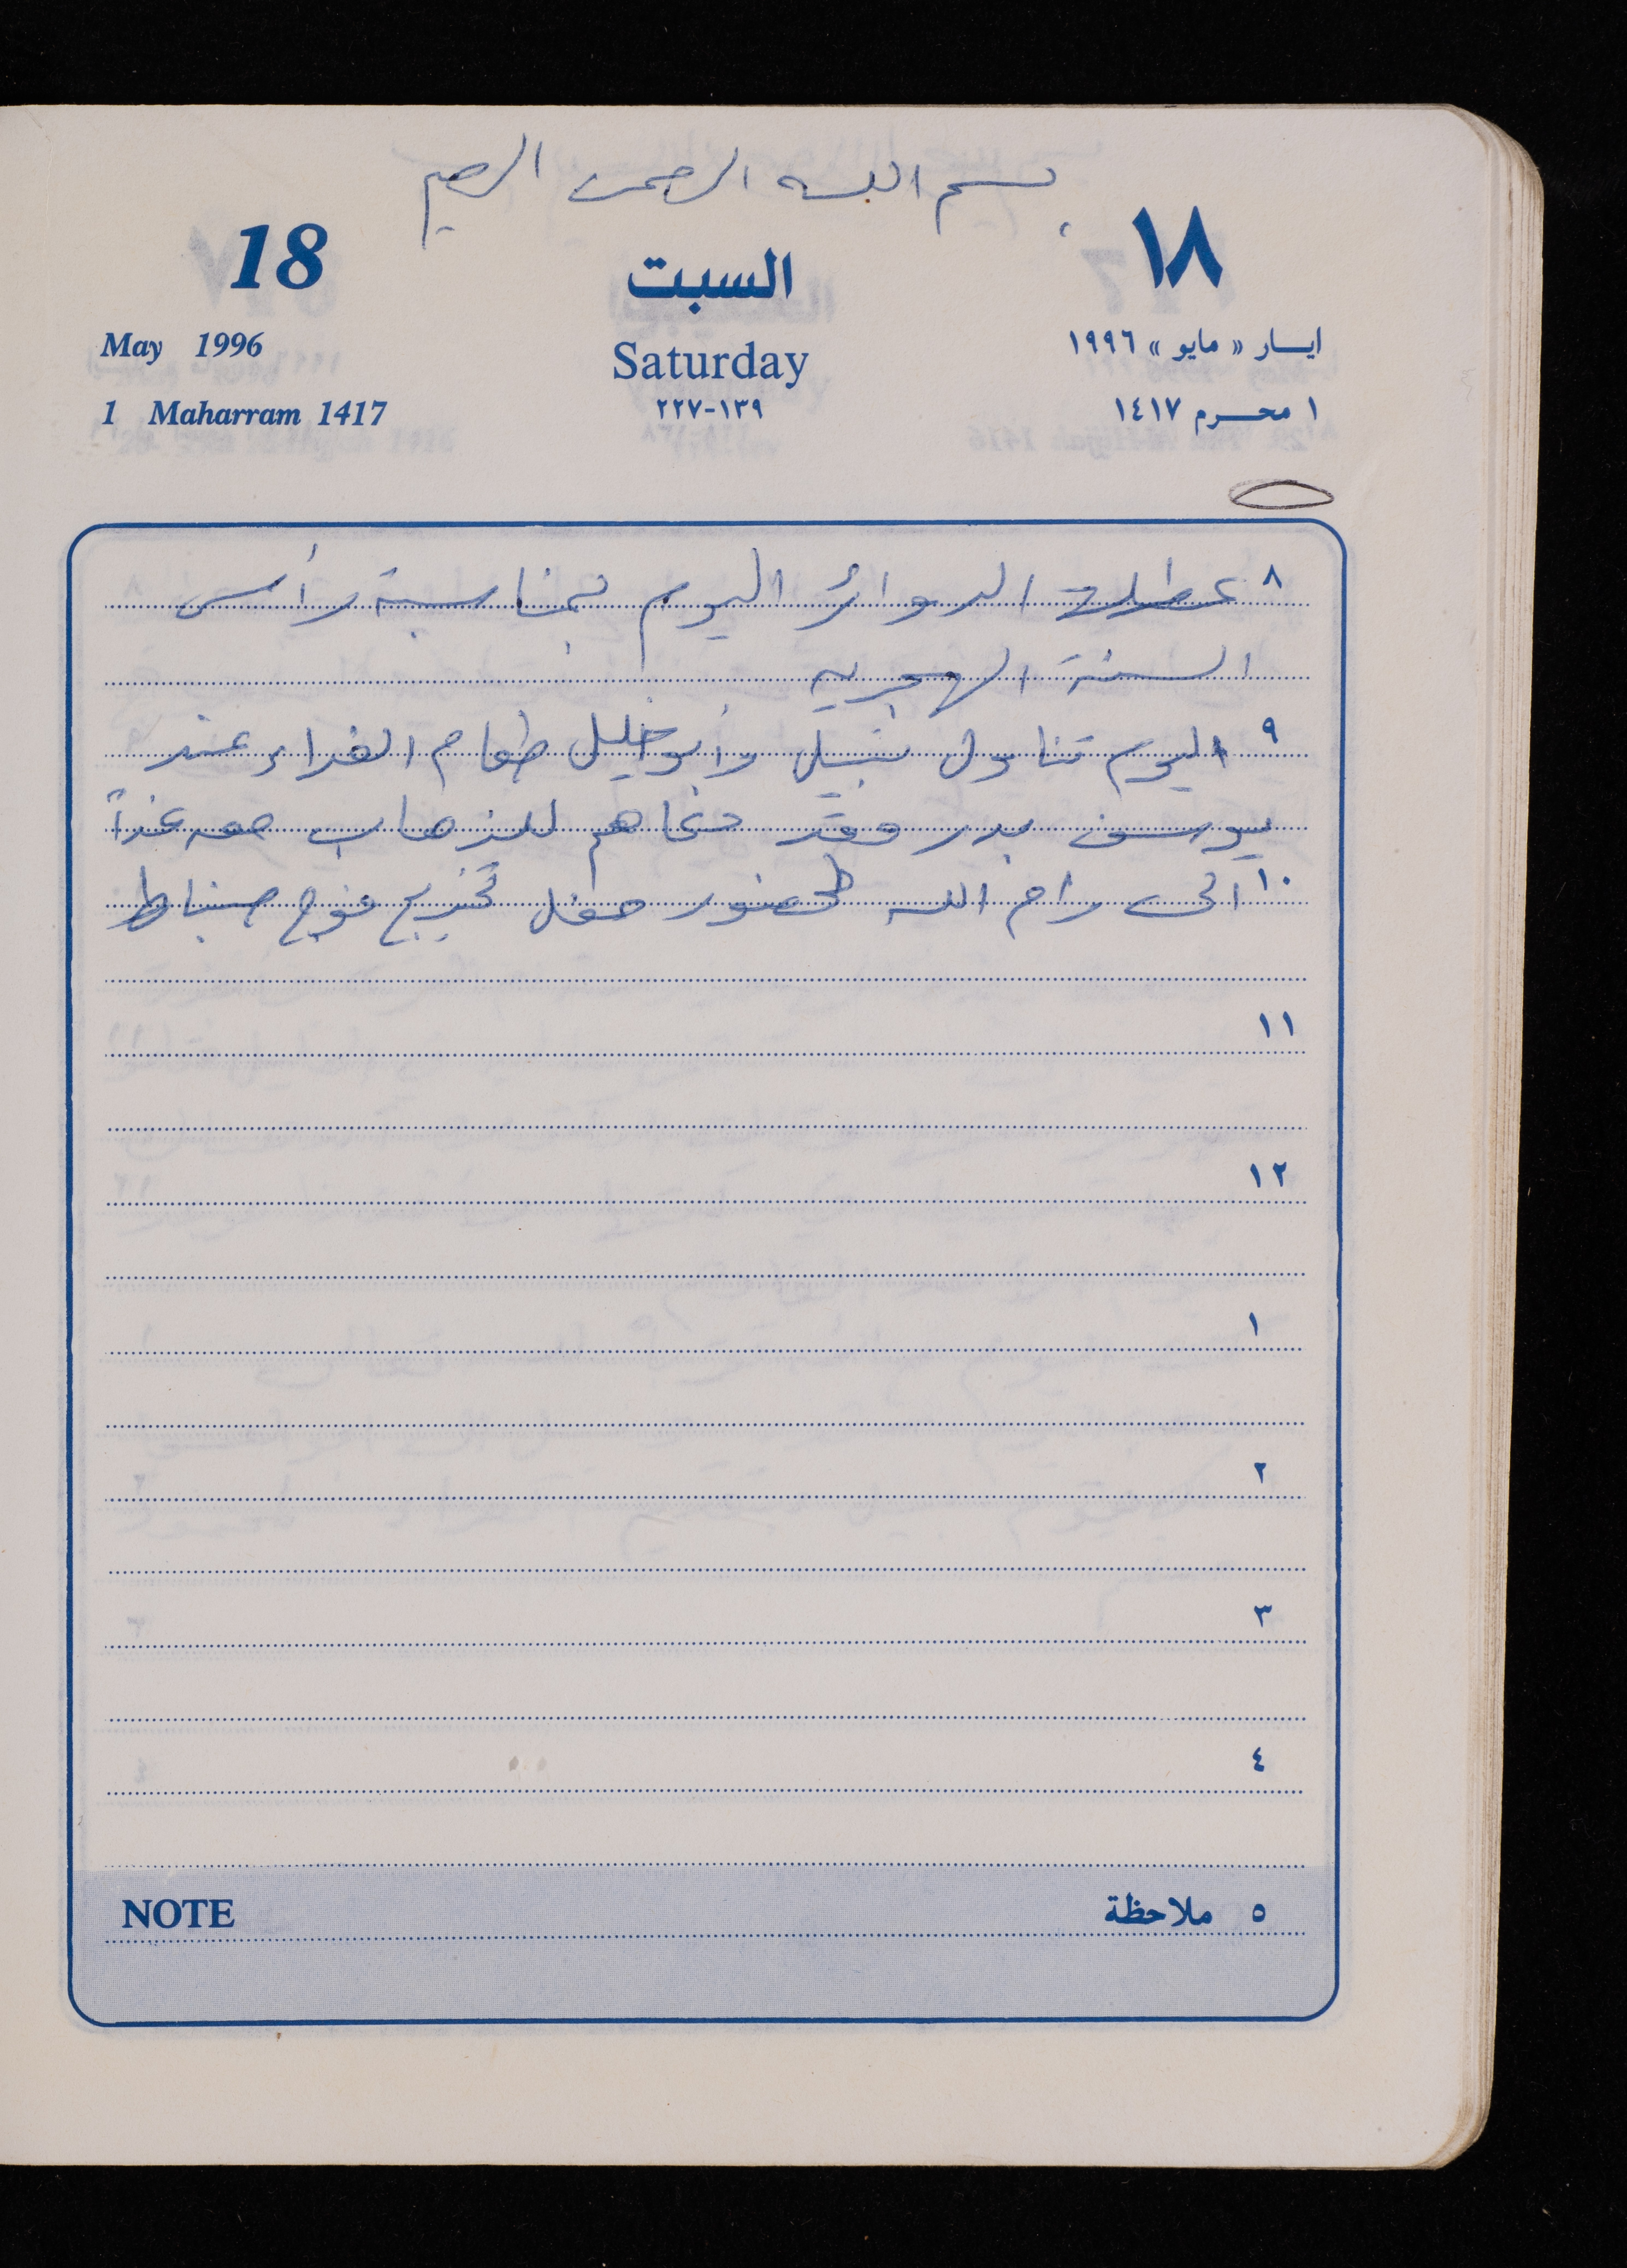 بسم الله الرحمن الرحيم
18
السبت
١٨
May 1996
Saturday
ايسار « مايو » ١٩٩٦
1 Maharram 1417
٢٢٧-١٣٩
١ محرم ١٤١٧
٨ عطلت الدوائر اليوم بمناسبة رأس
السنة الهجرية
٩ اليوم تناول نبيل وأبو خليل طعام الغداء عند
يوسف بدر وقد دعاهم للذهاب معه غداً
١٠ الى رام الله لحضور حفل تخريج فوج ضباط
١١
١٢
١
٢
٣
٤
NOTE ٥ ملاحظة